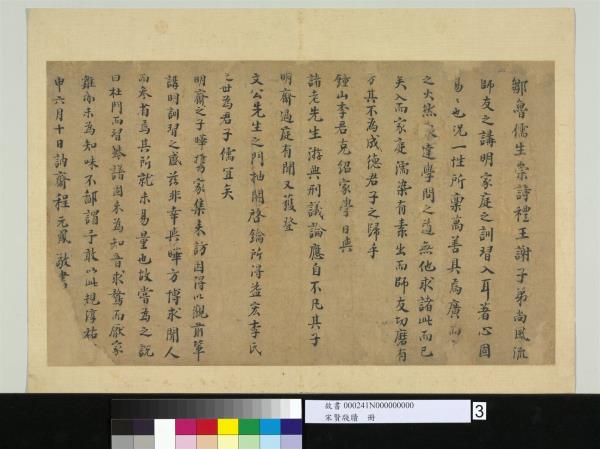 鄒魯儒生崇詩禮王謝子弟尚風流
師友之講明家庭之訓習入耳著心固
易易也況一性所稟萬善具焉廣而
之火然泉達學問之道無他求諸此而已
矣入而家庭濡染有素出而師友切磨有
方其不為成德君子之歸乎
鐘山李君克紹家學日與
諸老先生游與刑議論應自不凡其子
明齋過庭有聞又獲登
文公先生之門抽關啓鑰所得益宏李氏
之世為君子儒宜矣
明齋之子曄携家集來訪因得以觀前輩
講時訓習之盛茲非幸與曄方博求聞人
而來者焉其所就未易量也故嘗為之說
曰杜門而習琴譜因未為知音求騖而厭家
雞亦未為知味不鄙謂予敢以此規淳祐
申六月十日訥齋程元鳳敬書
故書 000241N000000000
宋賢牋牘 冊
3